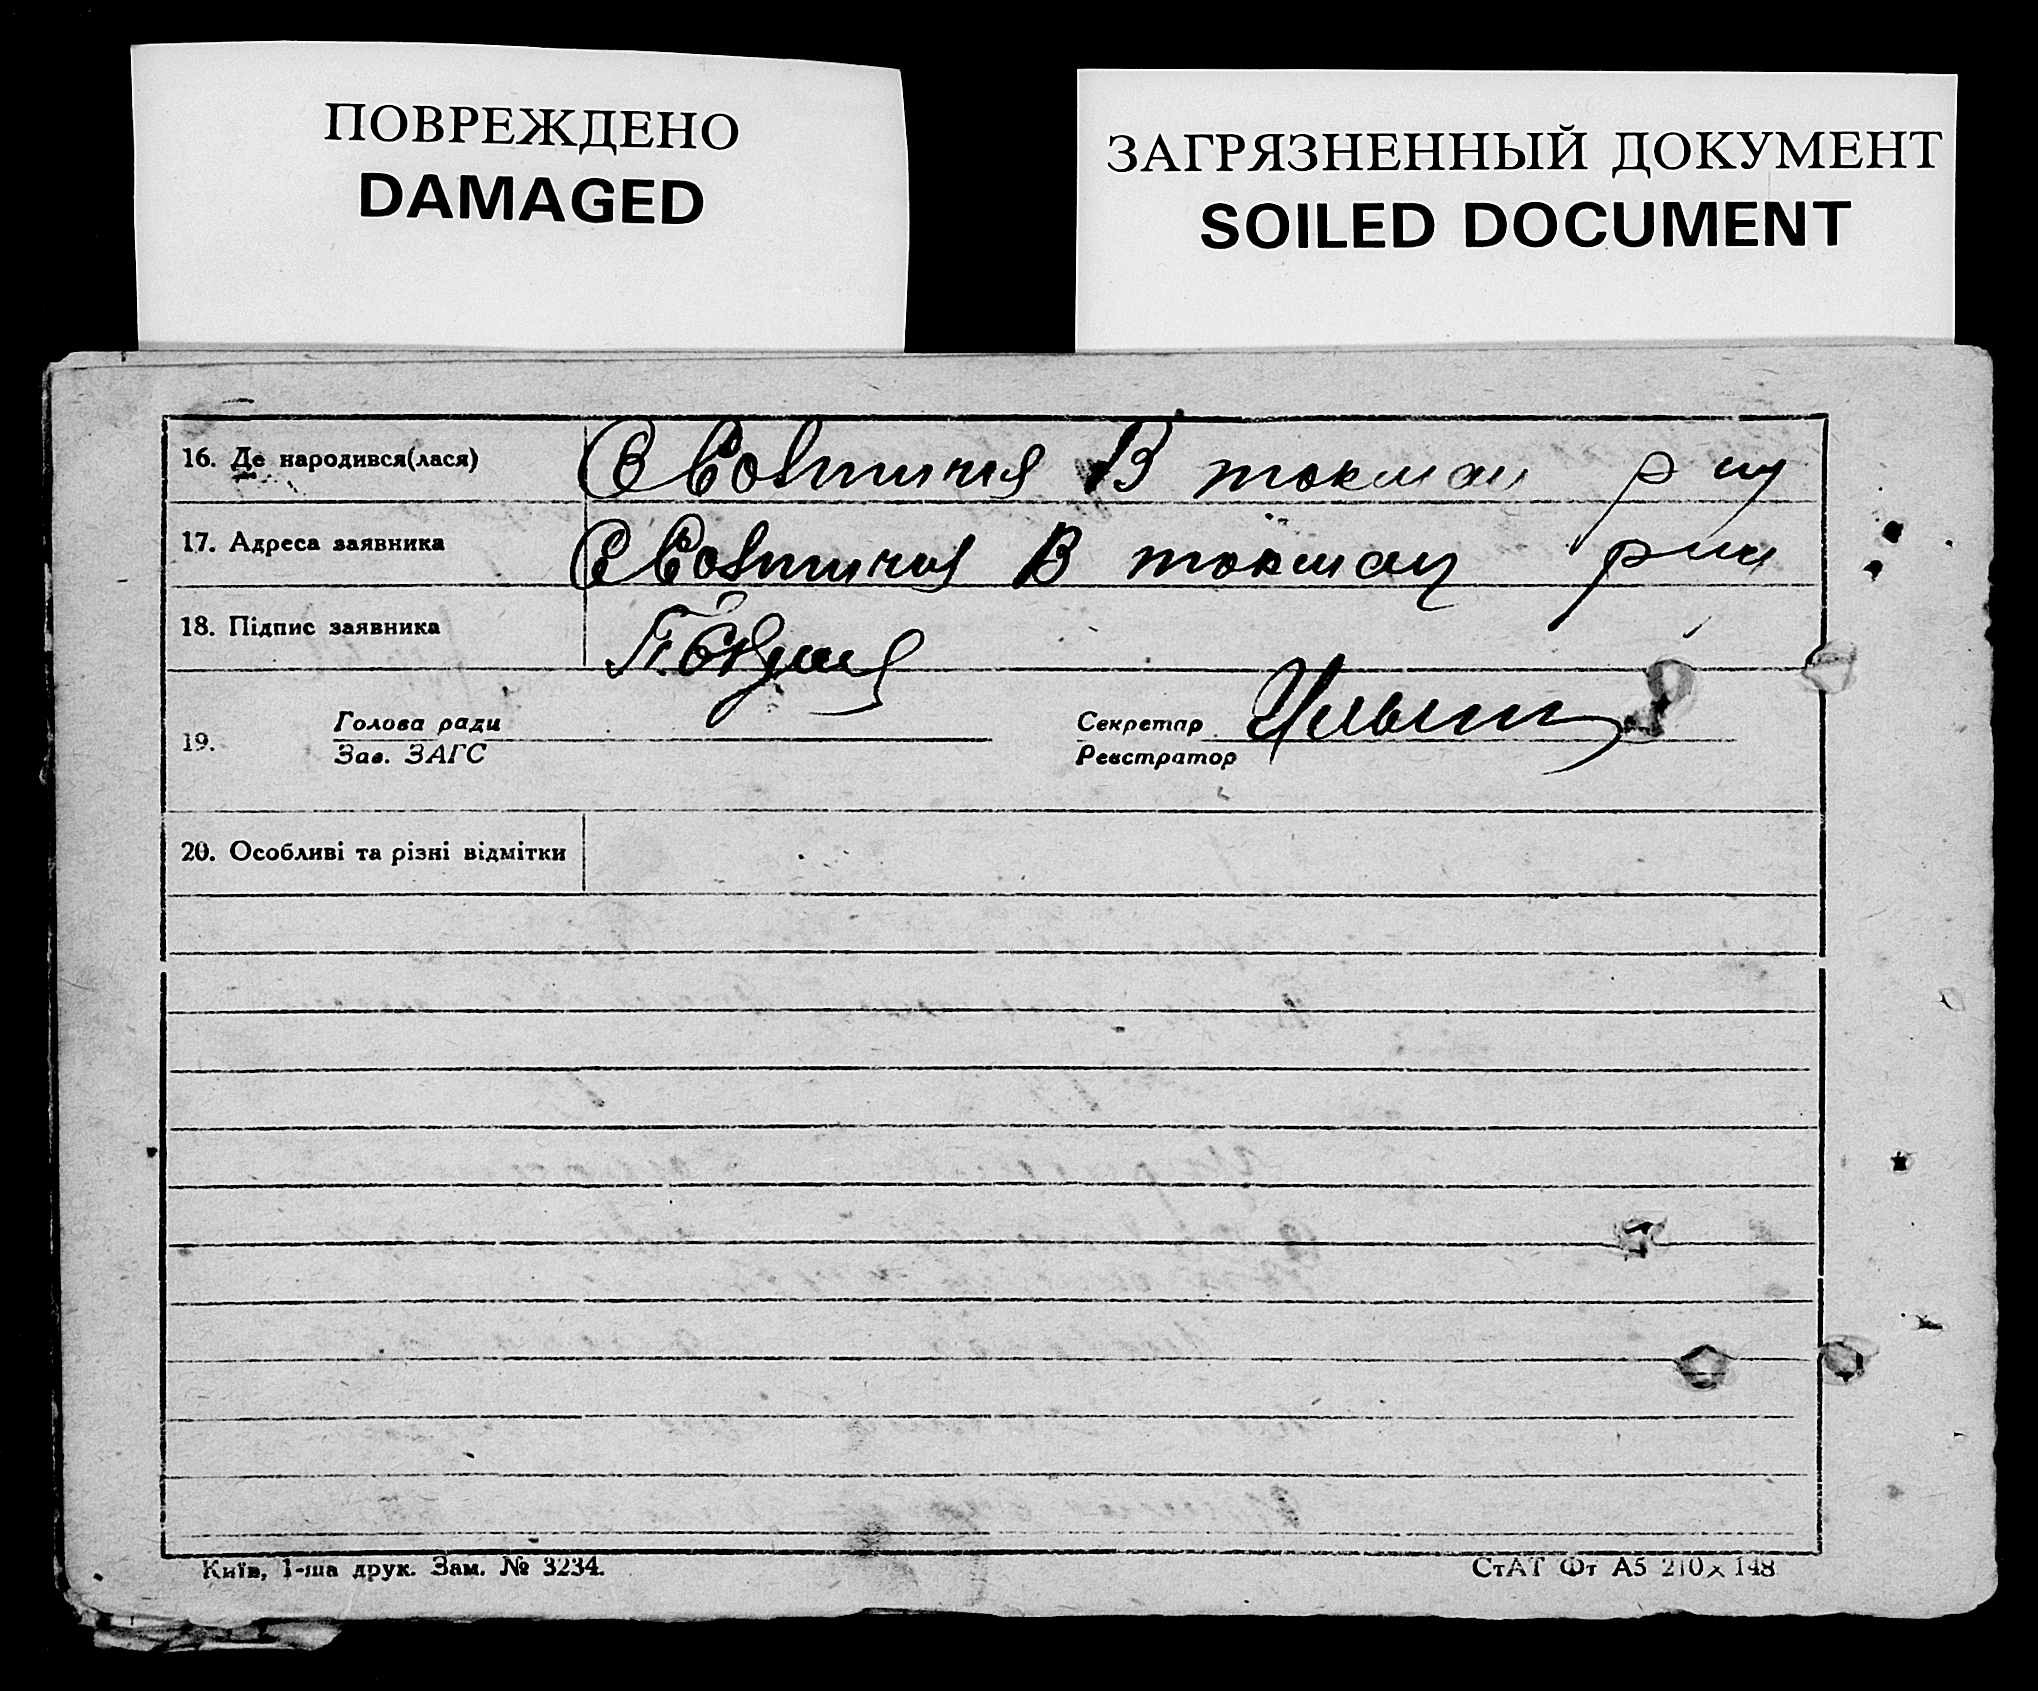 ПОВРЕЖДЕНО
DAMAGED
ЗАГРЯЗНЕННЫЙ ДОКУМЕНТ
SOILED DOCUMENT
16. Де народився(лася) В токмац
17. Адреса заявника В токмац
18. Підпис заявника
19. Голова ради
Зав. ЗАГС
Секретар
Реєстратор
20. Особливі та різні відмітки
Київ, 1-ша друк. Зам. № 3234.
СтАТ Фт А5 210 x 148